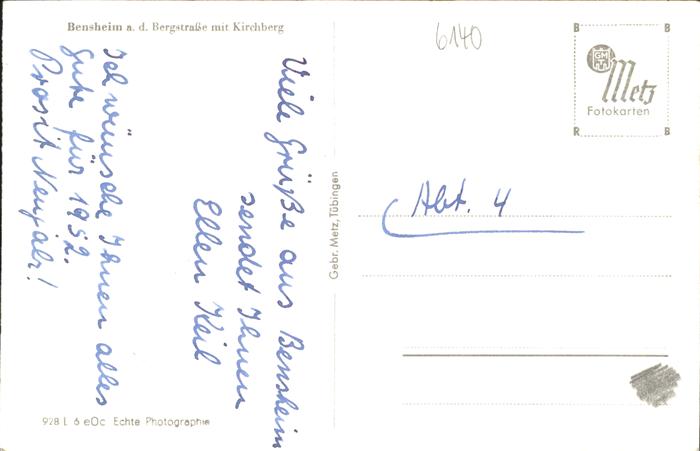 Bensheim a. d. Bergstraße mit Kirchberg
Viele Grüße aus Bensheim
sendet Ihnen
Ellen Keil
Ich wünsche Ihnen alles
gute für 1952.
Prosit Neujahr!
928 L 6 eOc Echte Photographie
Gebr. Metz, Tübingen
6140
B B
GM
Metz
Fotokarten
R B
Abt. 4